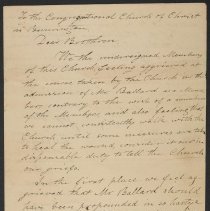 To the Congregational Church of Christ
in
Dear Brethren
We the undersigned Members
of this Church feeling aggrieved at
the course taken by the Church in the
admission of Mr Ballard as a Mem
ber contrary to the wish of a
of the Members and also feeling that
we cannot walk with the
Church until some measures are taken
to heal the wound, consider it an in
dispensable duty to tell the Church
our griefs.
In the first place we feel ag
grieved that Mr Ballard should
have been propounded in so hasty a